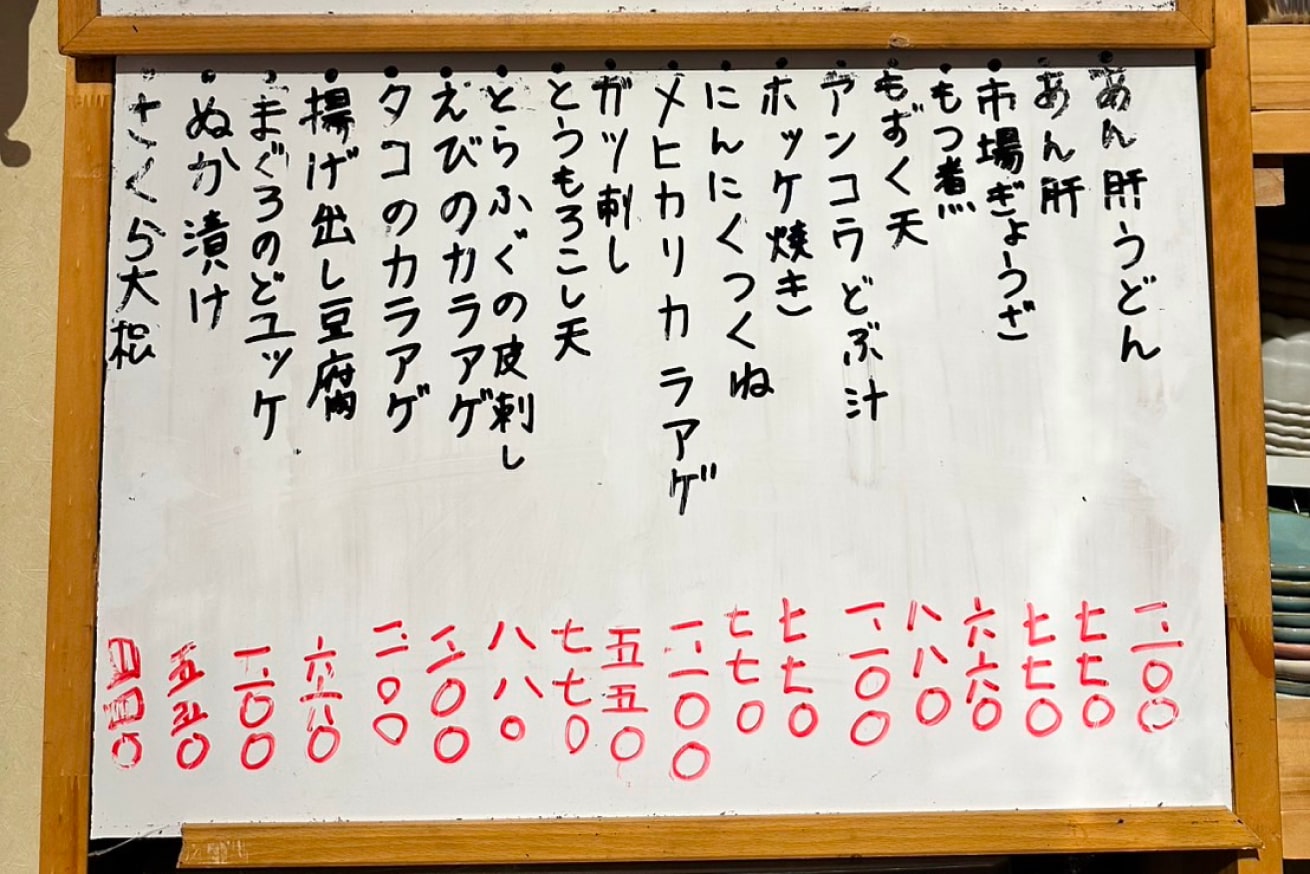 あん肝うどん 一、一〇〇
あん肝 七七〇
市場ぎょうざ 七七〇
もつ煮 六六〇
もずく天 八八〇
アンコウどぶ汁 一、一〇〇
ホッケ焼き 七七〇
にんにくつくね 七七〇
メヒカリカラアゲ 一、一〇〇
ガツ刺し 五五〇
とうもろこし天 七七〇
とらふぐの皮刺し 八八〇
えびのカラアゲ 一、一〇〇
タコのカラアゲ 一、一〇〇
揚げ出し豆腐 六六〇
まぐろのどユッケ 一、一〇〇
ぬか漬け 五五〇
さくら大根 四四〇